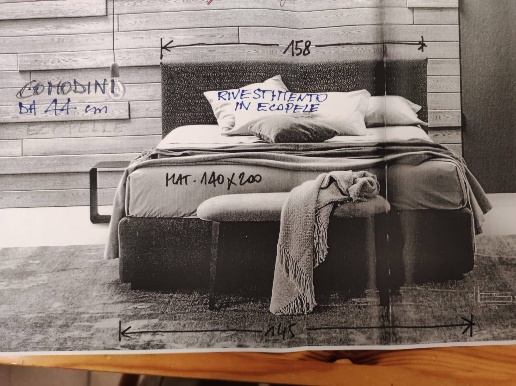 158
COMODINI
DA 44 cm
RIVESTIMENTO
IN ECOPELE
MAT. 140X200
145